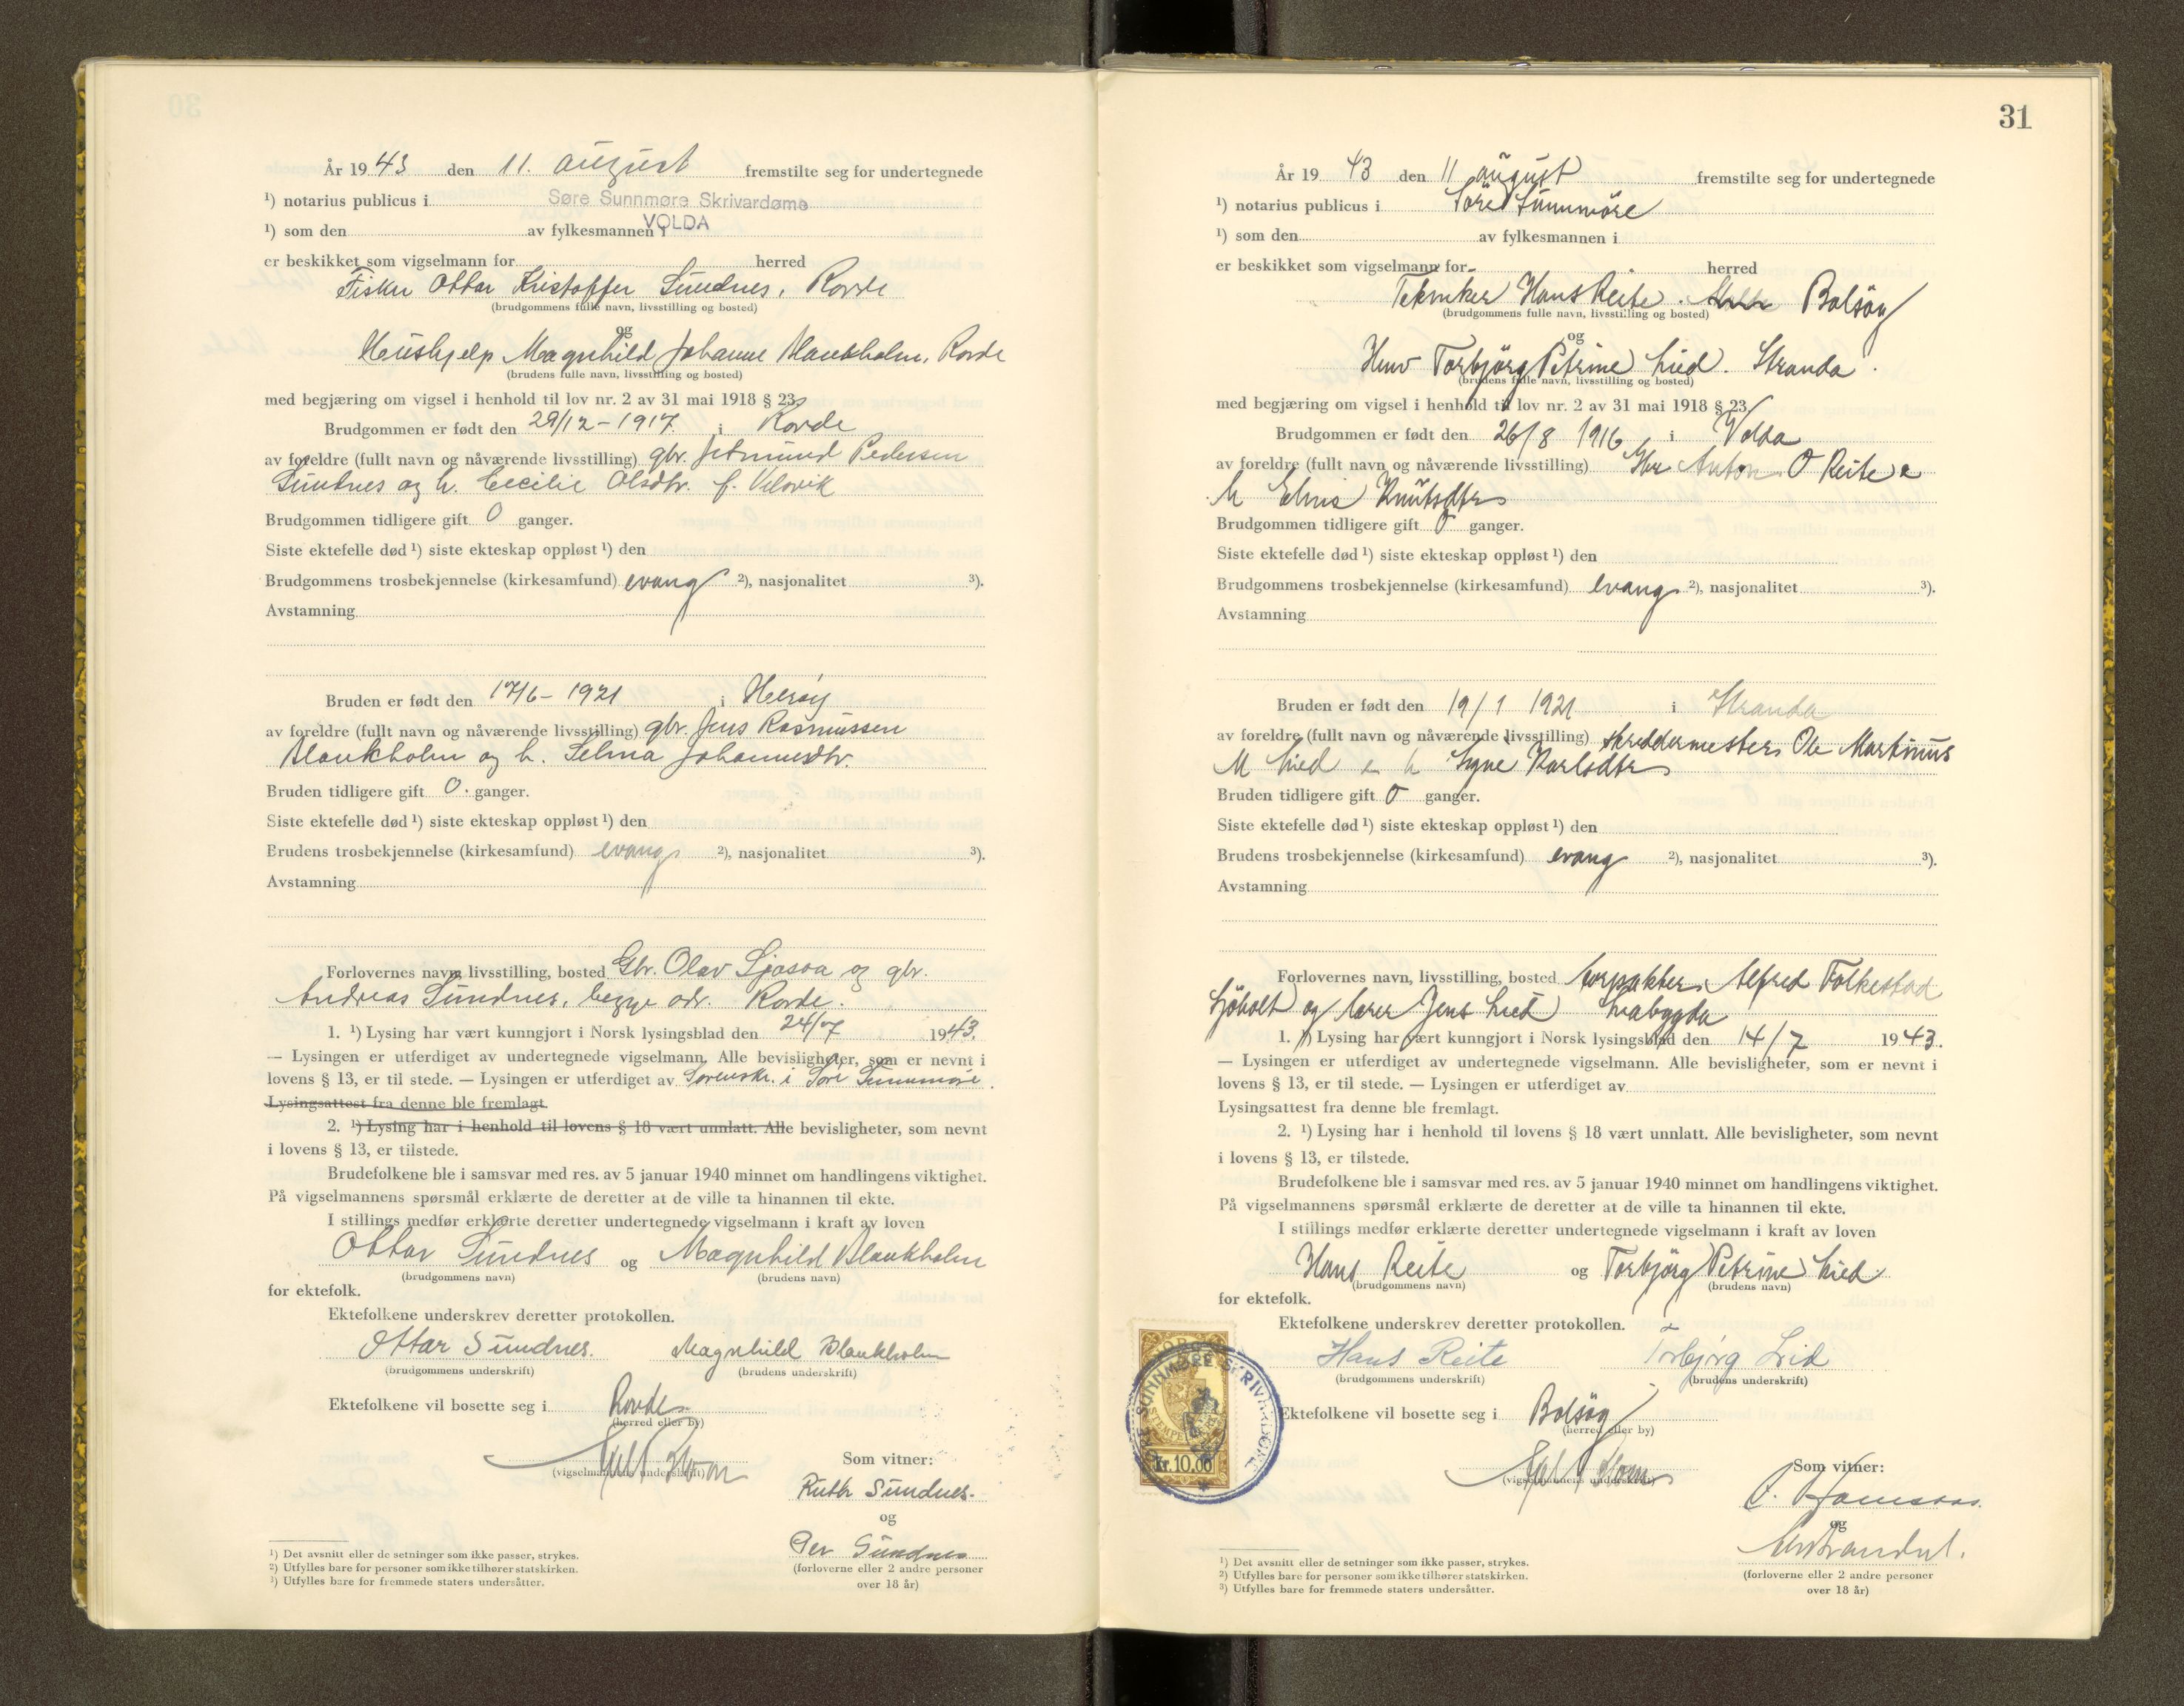 År 1943 den 11. august fremstilte seg for undertegnede
¹) notarius publicus i Søre Sunnmøre Skrivardøme
VOLDA
¹) som den av fylkesmannen i
er beskikket som vigselmann for herred
Fisker Ottar Kristoffer Sundnes, Rovde
(brudgommens fulle navn, livsstilling og bosted)
og
Hushjelp Magnhild Johanne Blankholm, Rovde
(brudens fulle navn, livsstilling og bosted)
med begjæring om vigsel i henhold til lov nr. 2 av 31 mai 1918 § 23.
Brudgommen er født den 29/12 - 1917 i Rovde
av foreldre (fullt navn og nåværende livsstilling) gbr. Jetmund Pedersen
Sundnes og h. Cecilie Olsdtr. f.
Brudgommen tidligere gift 0 ganger.
Siste ektefelle død ¹) siste ekteskap oppløst ¹) den
Brudgommens trosbekjennelse (kirkesamfund) evang ²), nasjonalitet ³).
Avstamning
Bruden er født den 17/6 - 1921 i Herøy
av foreldre (fullt navn og nåværende livsstilling) gbr. Jens Rasmussen
Blankholm og h. Selma Johannesdtr.
Bruden tidligere gift 0. ganger.
Siste ektefelle død ¹) siste ekteskap oppløst ¹) den
Brudens trosbekjennelse (kirkesamfund) evang ²), nasjonalitet ³).
Avstamning
Forlovernes navn livsstilling, bosted Gbr. Olav og gbr.
Andreas Sundnes, begge adr. Rovde.
1. ¹) Lysing har vært kunngjort i Norsk lysingsblad den 24/7 1943.
— Lysingen er utferdiget av undertegnede vigselmann. Alle bevisligheter, som er nevnt i
lovens § 13, er til stede. — Lysingen er utferdiget av Sorenskr. i Søre Sunnmøre.
Lysingsattest fra denne ble fremlagt
2. ¹) Lysing har i henhold til lovens § 18 vært unnlatt. Alle bevisligheter, som nevnt
i lovens § 13, er tilstede.
Brudefolkene ble i samsvar med res. av 5 januar 1940 minnet om handlingens viktighet.
På vigselmannens spørsmål erklærte de deretter at de ville ta hinannen til ekte.
I stillings medfør erklærte deretter undertegnede vigselmann i kraft av loven
Ottar Sundnes og Magnhild Blankholm
(brudgommens navn) (brudens navn)
for ektefolk.
Ektefolkene underskrev deretter protokollen.
Ottar Sundnes. Magnhild Blankholm
(brudgommens underskrift) (brudens underskrift)
Ektefolkene vil bosette seg i Rovde
(herred eller by)
(vigselmannens underskrift)
Som vitner:
Ruth Sundnes.
og
Per Sundnes
(forloverne eller 2 andre personer
over 18 år)
¹) Det avsnitt eller de setninger som ikke passer, strykes.
²) Utfylles bare for personer som ikke tilhører statskirken.
³) Utfylles bare for fremmede staters undersåtter.
31
År 1943 den 11 august fremstilte seg for undertegnede
¹) notarius publicus i Søre Sunnmøre
¹) som den av fylkesmannen i
er beskikket som vigselmann for herred
Tekniker Hans Reite. Bolsöy
(brudgommens fulle navn, livsstilling og bosted)
og
Torbjörg Petrine Lied. Stranda.
(brudens fulle navn, livsstilling og bosted)
med begjæring om vigsel i henhold til lov nr. 2 av 31 mai 1918 § 23
Brudgommen er født den 26/8 1916 i Volda
av foreldre (fullt navn og nåværende livsstilling) Gbr Anton O Reite
h Knutsdtr
Brudgommen tidligere gift 0 ganger.
Siste ektefelle død ¹) siste ekteskap oppløst ¹) den
Brudgommens trosbekjennelse (kirkesamfund) evang ²), nasjonalitet ³).
Avstamning
Bruden er født den 19/1 1921 i Stranda
av foreldre (fullt navn og nåværende livsstilling) skreddermester Ole Martinus
M Lied h Signe Karlsdtr
Bruden tidligere gift 0 ganger.
Siste ektefelle død ¹) siste ekteskap oppløst ¹) den
Brudens trosbekjennelse (kirkesamfund) evang ²), nasjonalitet ³).
Avstamning
Forlovernes navn, livsstilling, bosted Alfred Folkestad
Sjöholt og lærer Jens Lied
1. ¹) Lysing har vært kunngjort i Norsk lysingsblad den 14/7 1943.
— Lysingen er utferdiget av undertegnede vigselmann. Alle bevisligheter, som er nevnt i
lovens § 13, er til stede. — Lysingen er utferdiget av
Lysingsattest fra denne ble fremlagt.
2. ¹) Lysing har i henhold til lovens § 18 vært unnlatt. Alle bevisligheter, som nevnt
i lovens § 13, er tilstede.
Brudefolkene ble i samsvar med res. av 5 januar 1940 minnet om handlingens viktighet.
På vigselmannens spørsmål erklærte de deretter at de ville ta hinannen til ekte.
I stillings medfør erklærte deretter undertegnede vigselmann i kraft av loven
Hans Reite og Torbjörg Petrine Lied
(brudgommens navn) (brudens navn)
for ektefolk.
Ektefolkene underskrev deretter protokollen.
Hans Reite Torbjørg Lid
(brudgommens underskrift) (brudens underskrift)
Ektefolkene vil bosette seg i Bolsöy
(herred eller by)
(vigselmannens underskrift)
SØRE SUNNMØRE SKRIVARDØME
Kr. 10,00
Som vitner:
og
(forloverne eller 2 andre personer
over 18 år)
¹) Det avsnitt eller de setninger som ikke passer, strykes.
²) Utfylles bare for personer som ikke tilhører statskirken.
³) Utfylles bare for fremmede staters undersåtter.